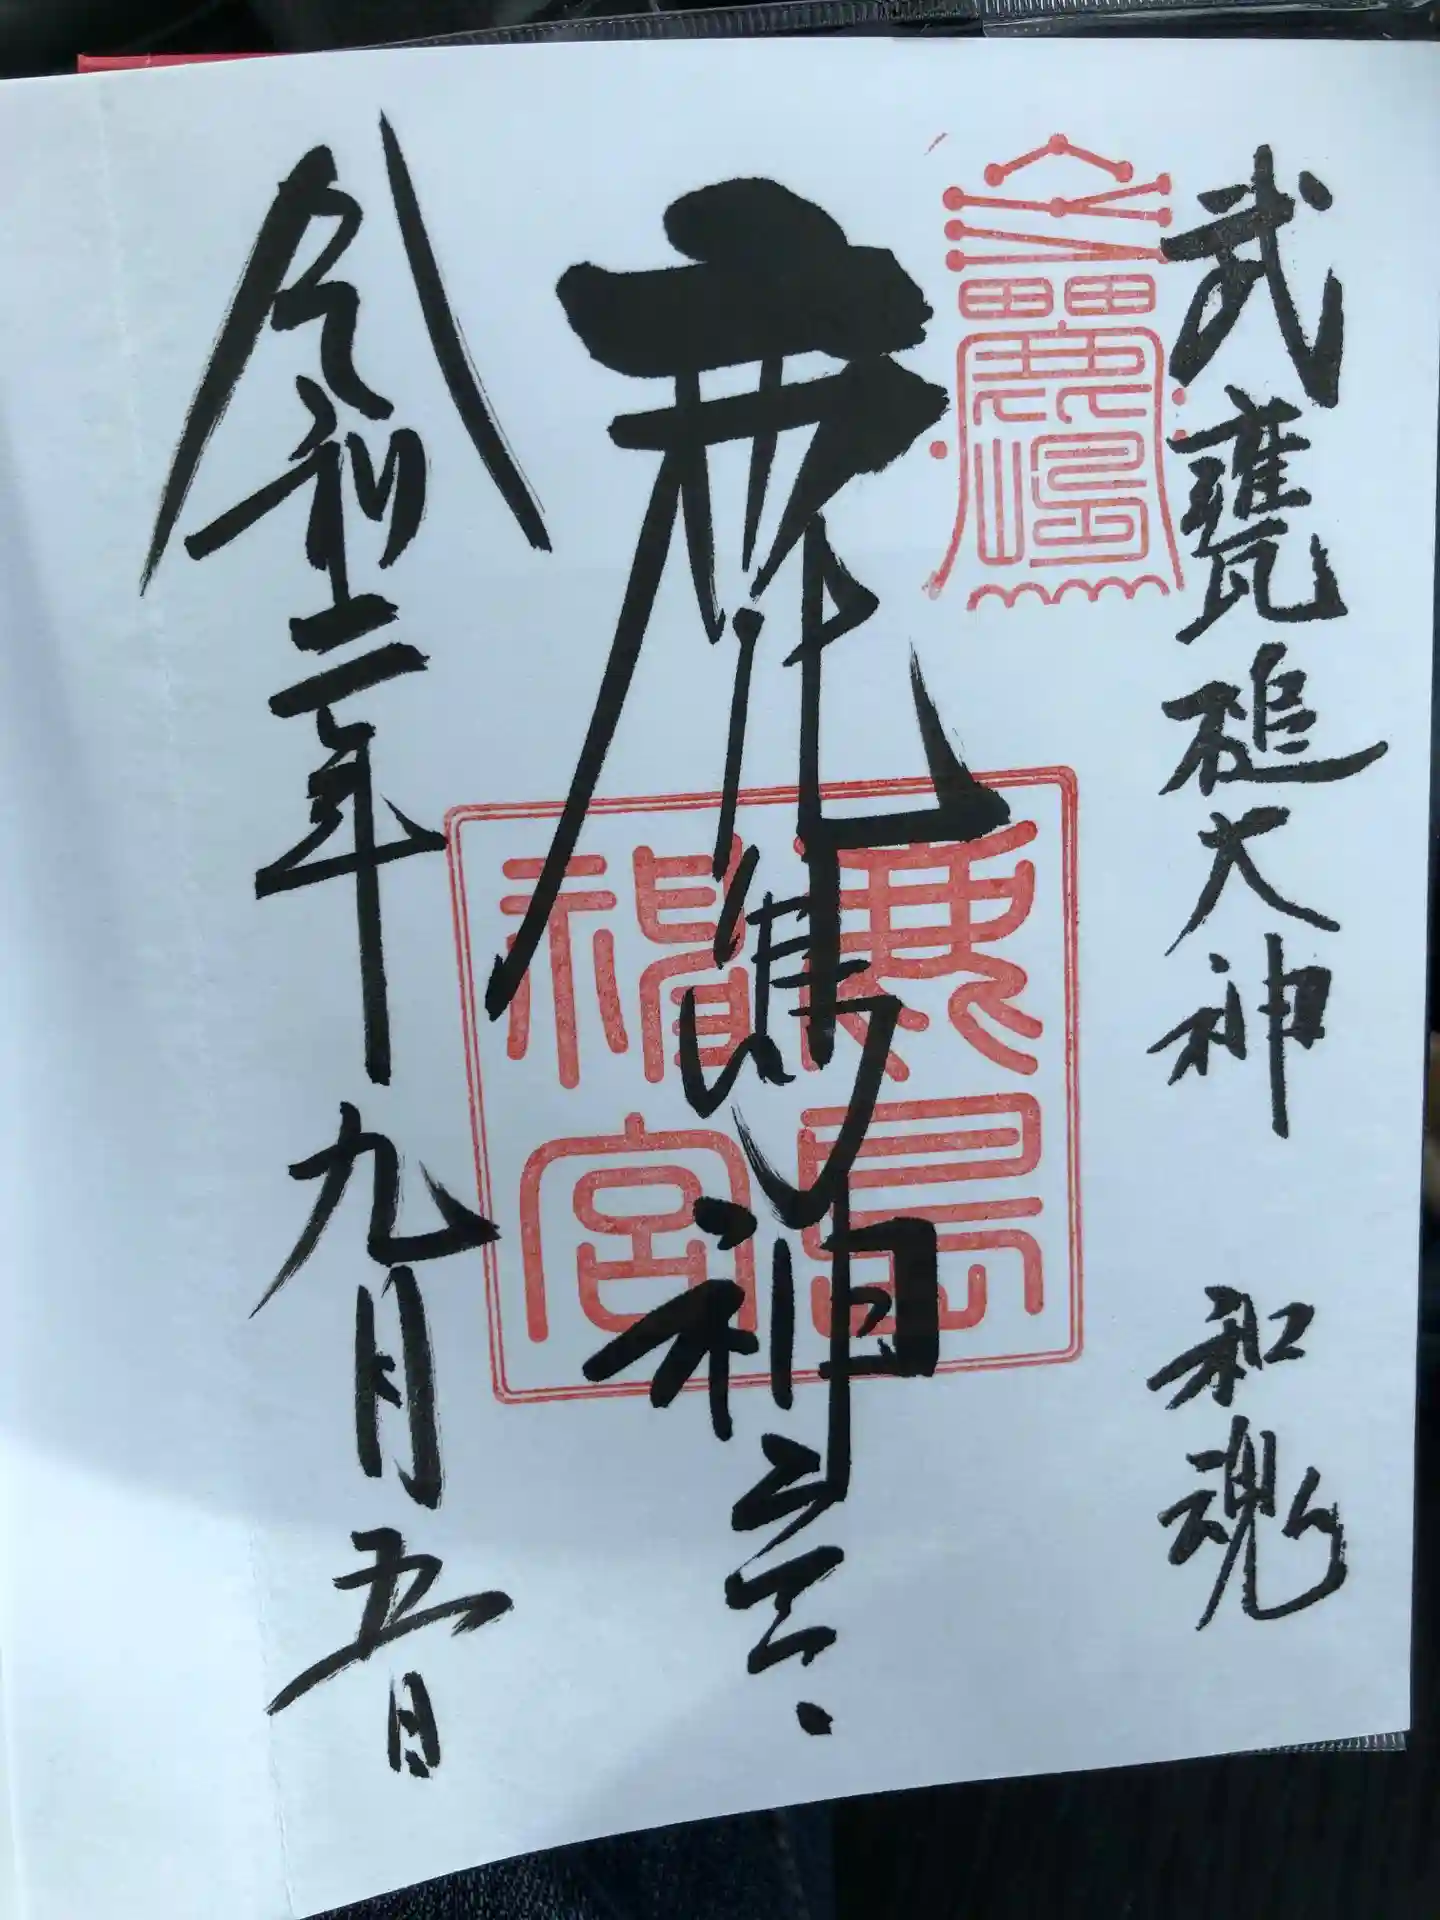 武甕槌大神 和魂
鹿嶋
鹿嶋神宮
鹿島神宮
令和二年九月五日